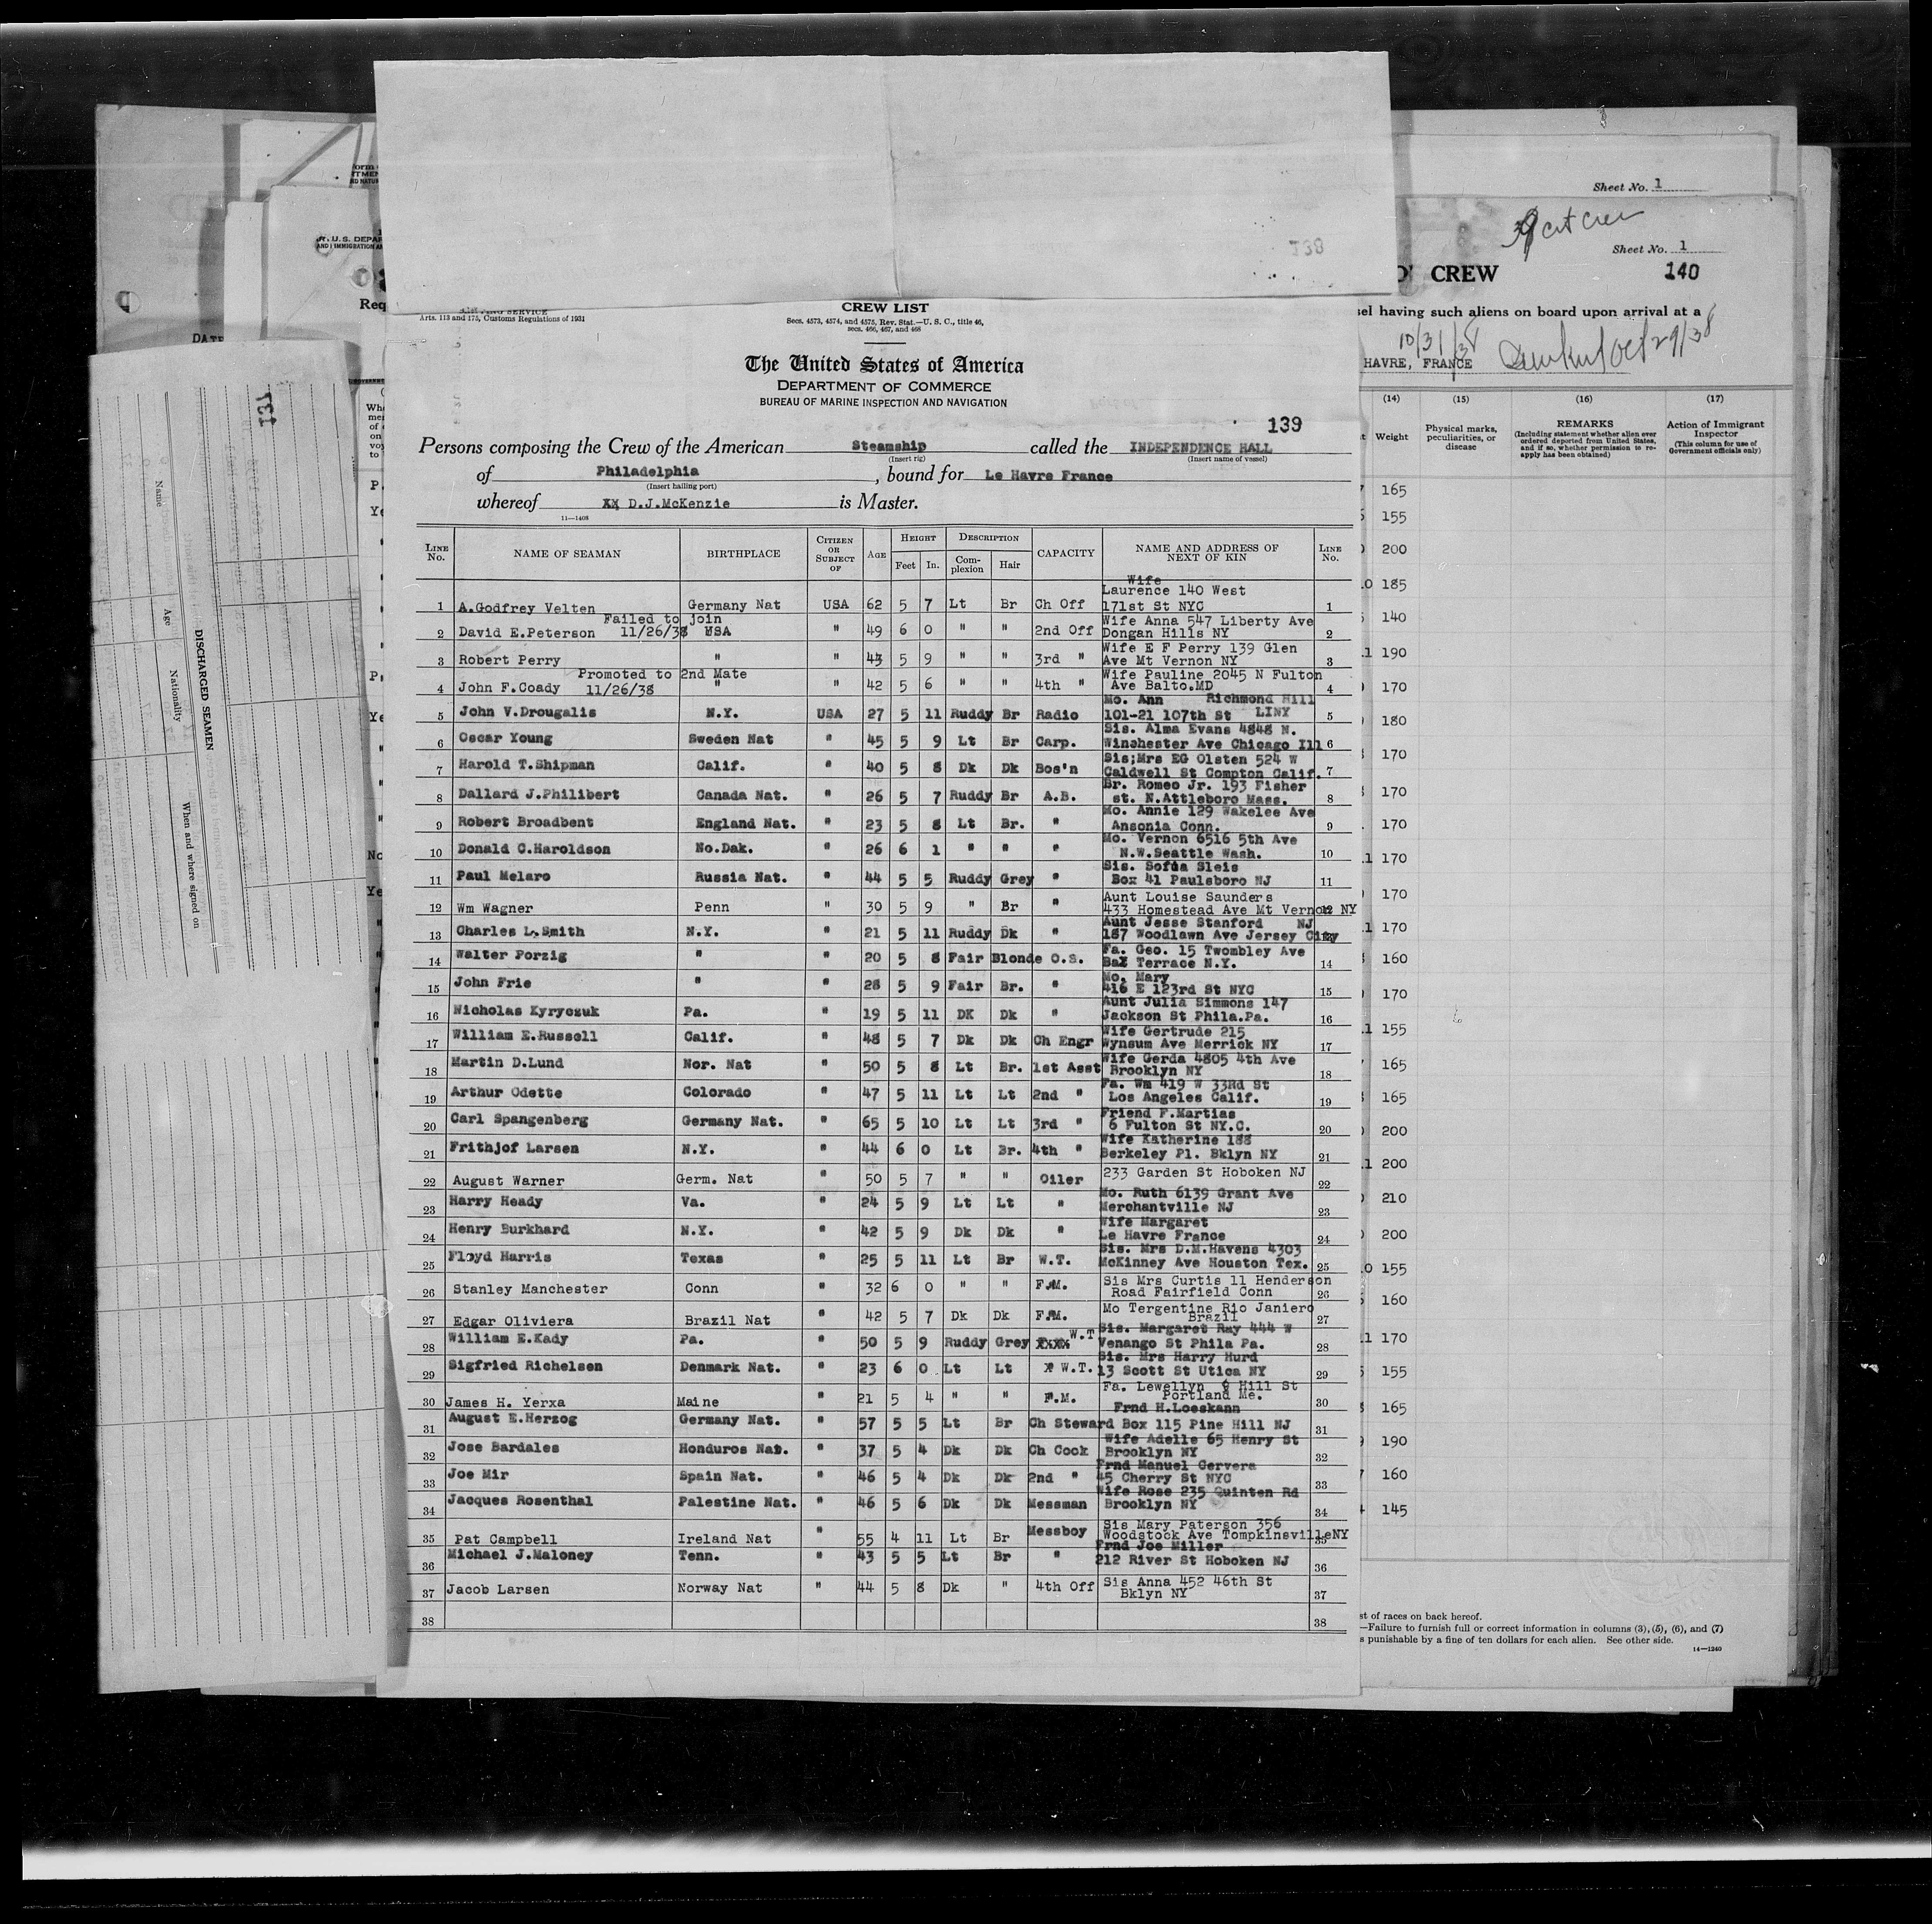 138
SERVICE
Arts. 113 and 175, Customs Regulations of 1931
CREW LIST
Secs. 4573, 4574, and 4575, Rev. Stat.—U. S. C., title 46,
secs. 466, 467, and 468
The United States of America
DEPARTMENT OF COMMERCE
BUREAU OF MARINE INSPECTION AND NAVIGATION
139
Persons composing the Crew of the American Steamship called the INDEPENDENCE HALL
(Insert rig) (Insert name of vessel)
of Philadelphia, bound for Le Havre France
(Insert hailing port)
whereof XX D.J.McKenzie is Master.
11—1408
LINE No. NAME OF SEAMAN BIRTHPLACE CITIZEN OR SUBJECT OF AGE HEIGHT Feet In. DESCRIPTION Complexion Hair CAPACITY NAME AND ADDRESS OF NEXT OF KIN LINE No.
Wife
Laurence 140 West
1 A.Godfrey Velten Germany Nat USA 62 5 7 Lt Br Ch Off 171st St NYC 1
Failed to join Wife Anna 547 Liberty Ave
2 David E.Peterson 11/26/38 USA " 49 6 0 " " 2nd Off Dongan Hills NY 2
Wife E F Perry 139 Glen
3 Robert Perry " " 43 5 9 " " 3rd " Ave Mt Vernon NY 3
Promoted to 2nd Mate Wife Pauline 2045 N Fulton
4 John F.Coady 11/26/38 " " 42 5 6 " " 4th " Ave Balto.MD 4
Mo. Ann Richmond Hill
5 John V.Drougalis N.Y. USA 27 5 11 Ruddy Br Radio 101-21 107th St LINY 5
Sis. Alma Evans 4848 N.
6 Oscar Young Sweden Nat " 45 5 9 Lt Br Carp. Winchester Ave Chicago Ill 6
Sis;Mrs EG Olsten 524 W
7 Harold T.Shipman Calif. " 40 5 8 Dk Dk Bos'n Caldwell St Compton Calif. 7
Br. Romeo Jr. 193 Fisher
8 Dallard J.Philibert Canada Nat. " 26 5 7 Ruddy Br A.B. st. N.Attleboro Mass. 8
Mo. Annie 129 Wakelee Ave
9 Robert Broadbent England Nat. " 23 5 8 Lt Br. " Ansonia Conn. 9
Mo. Vernon 6516 5th Ave
10 Donald C.Haroldson No.Dak. " 26 6 1 " " " N.W.Seattle Wash. 10
Sis. Sofia Sleis
11 Paul Melaro Russia Nat. " 44 5 5 Ruddy Grey " Box 41 Paulsboro NJ 11
Aunt Louise Saunders
12 Wm Wagner Penn " 30 5 9 " Br " 433 Homestead Ave Mt Vernon NY 12
Aunt Jesse Stanford NJ
13 Charles L.Smith N.Y. " 21 5 11 Ruddy Dk " 187 Woodlawn Ave Jersey City
Fa. Geo. 15 Twombley Ave
14 Walter Porzig " " 20 5 8 Fair Blonde O.S. Terrace N.Y. 14
Mo. Mary
15 John Frie " " 28 5 9 Fair Br. " 416 E 123rd St NYC 15
Aunt Julia Simmons 147
16 Nicholas Kyryczuk Pa. " 19 5 11 DK Dk " Jackson St Phila.Pa. 16
Wife Gertrude 215
17 William E.Russell Calif. " 48 5 7 Dk Dk Ch Engr Wynsum Ave Merrick NY 17
Wife Gerda 4805 4th Ave
18 Martin D.Lund Nor. Nat " 50 5 8 Lt Br. 1st Asst Brooklyn NY 18
Fa. Wm 419 W 33Rd St
19 Arthur Odette Colorado " 47 5 11 Lt Lt 2nd " Los Angeles Calif. 19
Friend F.Martias
20 Carl Spangenberg Germany Nat. " 65 5 10 Lt Lt 3rd " 6 Fulton St NY.C. 20
Wife Katherine 188
21 Frithjof Larsen N.Y. " 44 6 0 Lt Br. 4th " Berkeley Pl. Bklyn NY 21
22 August Warner Germ. Nat " 50 5 7 " " Oiler 233 Garden St Hoboken NJ 22
Mo. Ruth 6139 Grant Ave
23 Harry Heady Va. " 24 5 9 Lt Lt " Merchantville NJ 23
Wife Margaret
24 Henry Burkhard N.Y. " 42 5 9 Dk Dk " Le Havre France 24
Sis. Mrs D.M.Havens 4303
25 Floyd Harris Texas " 25 5 11 Lt Br W.T. McKinney Ave Houston Tex. 25
Sis Mrs Curtis 11 Henderson
26 Stanley Manchester Conn " 32 6 0 " " F.M. Road Fairfield Conn 26
Mo Tergentine Rio Janiero
27 Edgar Oliviera Brazil Nat " 42 5 7 Dk Dk F.M. Brazil 27
Sis. Margaret Ray 444 W
28 William E.Kady Pa. " 50 5 9 Ruddy Grey W.T Venango St Phila Pa. 28
Sis. Mrs Harry Hurd
29 Sigfried Richelsen Denmark Nat. " 23 6 0 Lt Lt W.T. 13 Scott St Utica NY 29
Fa. Lewellyn Hill St
30 James H. Yerxa Maine " 21 5 4 " " F.M. Portland Me. 30
Frnd H.Loeskann
31 August E.Herzog Germany Nat. " 57 5 5 Lt Br Ch Steward Box 115 Pine Hill NJ 31
Wife Adelle 65 Henry St
32 Jose Bardales Honduros Nat. " 37 5 4 Dk Dk Ch Cook Brooklyn NY 32
Frnd Manuel Cervera
33 Joe Mir Spain Nat. " 46 5 4 Dk Dk 2nd " 45 Cherry St NYC 33
Wife Rose 235 Quinten Rd
34 Jacques Rosenthal Palestine Nat. " 46 5 6 Dk Dk Messman Brooklyn NY 34
Sis Mary Paterson 356
35 Pat Campbell Ireland Nat " 55 4 11 Lt Br Messboy Woodstock Ave Tompkinsville NY 35
Frnd Joe Miller
36 Michael J.Maloney Tenn. " 43 5 5 Lt Br " 212 River St Hoboken NJ 36
Sis Anna 452 46th St
37 Jacob Larsen Norway Nat " 44 5 8 Dk " 4th Off Bklyn NY 37
38 38
Sheet No. 1
Sheet No. 1
CREW 140
having such aliens on board upon arrival at a
10/31/38
HAVRE, FRANCE Oct 29/38
(14) (15) (16) (17)
Weight
Physical marks, peculiarities, or disease
REMARKS
(Including statement whether alien ever ordered deported from United States, and if so, whether permission to reapply has been obtained)
Action of Immigrant Inspector
(This column for use of Government officials only)
165
155
200
185
140
190
170
180
170
170
170
170
170
170
160
170
155
165
165
200
200
210
200
155
160
170
155
165
190
160
145
of races on back hereof.
—Failure to furnish full or correct information in columns (3), (5), (6), and (7)
punishable by a fine of ten dollars for each alien. See other side.
14—1240
131
DISCHARGED SEAMEN
Name
Age
Nationality
When and where signed on
U.S. DEPAR
AND IMMIGRATION
Req
DATE